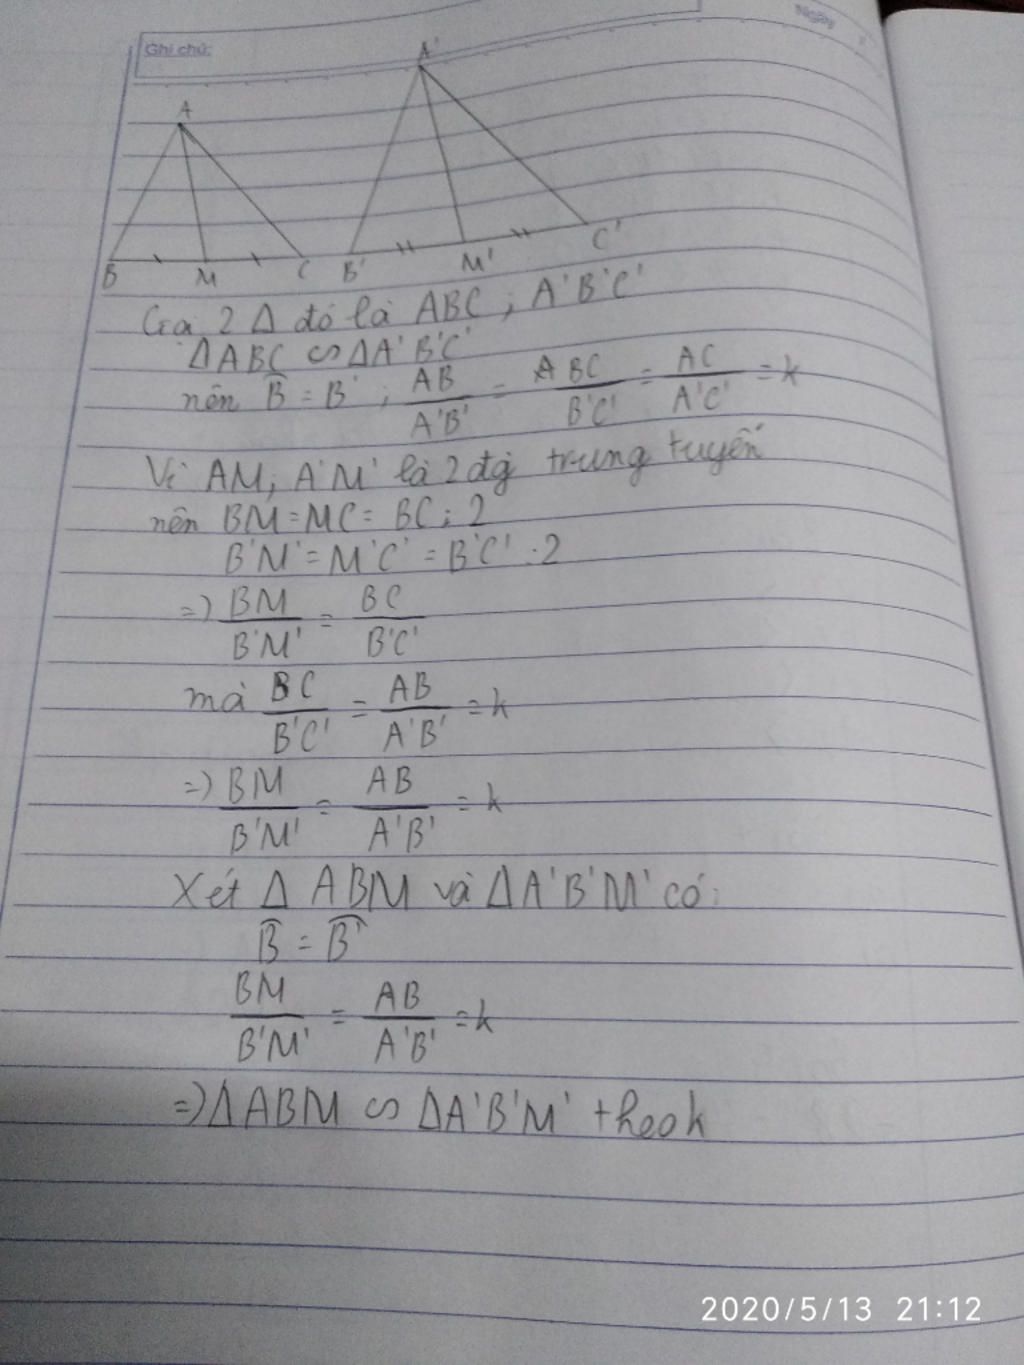 Ghi chú:
Ngày
A'
A
B M C B' M' C'
Gọi 2 Δ đó là ABC ; A'B'C'
ΔABC ∽ ΔA'B'C'
nên B̂ = B' ; AB/A'B' = ABC/B'C' = AC/A'C' = k
Vì AM; A'M' là 2 đg trung tuyến
nên BM = MC = BC : 2
B'M' = M'C' = B'C' : 2
=> BM/B'M' = BC/B'C'
mà BC/B'C' = AB/A'B' = k
=> BM/B'M' = AB/A'B' = k
Xét Δ ABM và ΔA'B'M' có:
B̂ = B̂'
BM/B'M' = AB/A'B' = k
=> ΔABM ∽ ΔA'B'M' theo k
2020/5/13 21:12